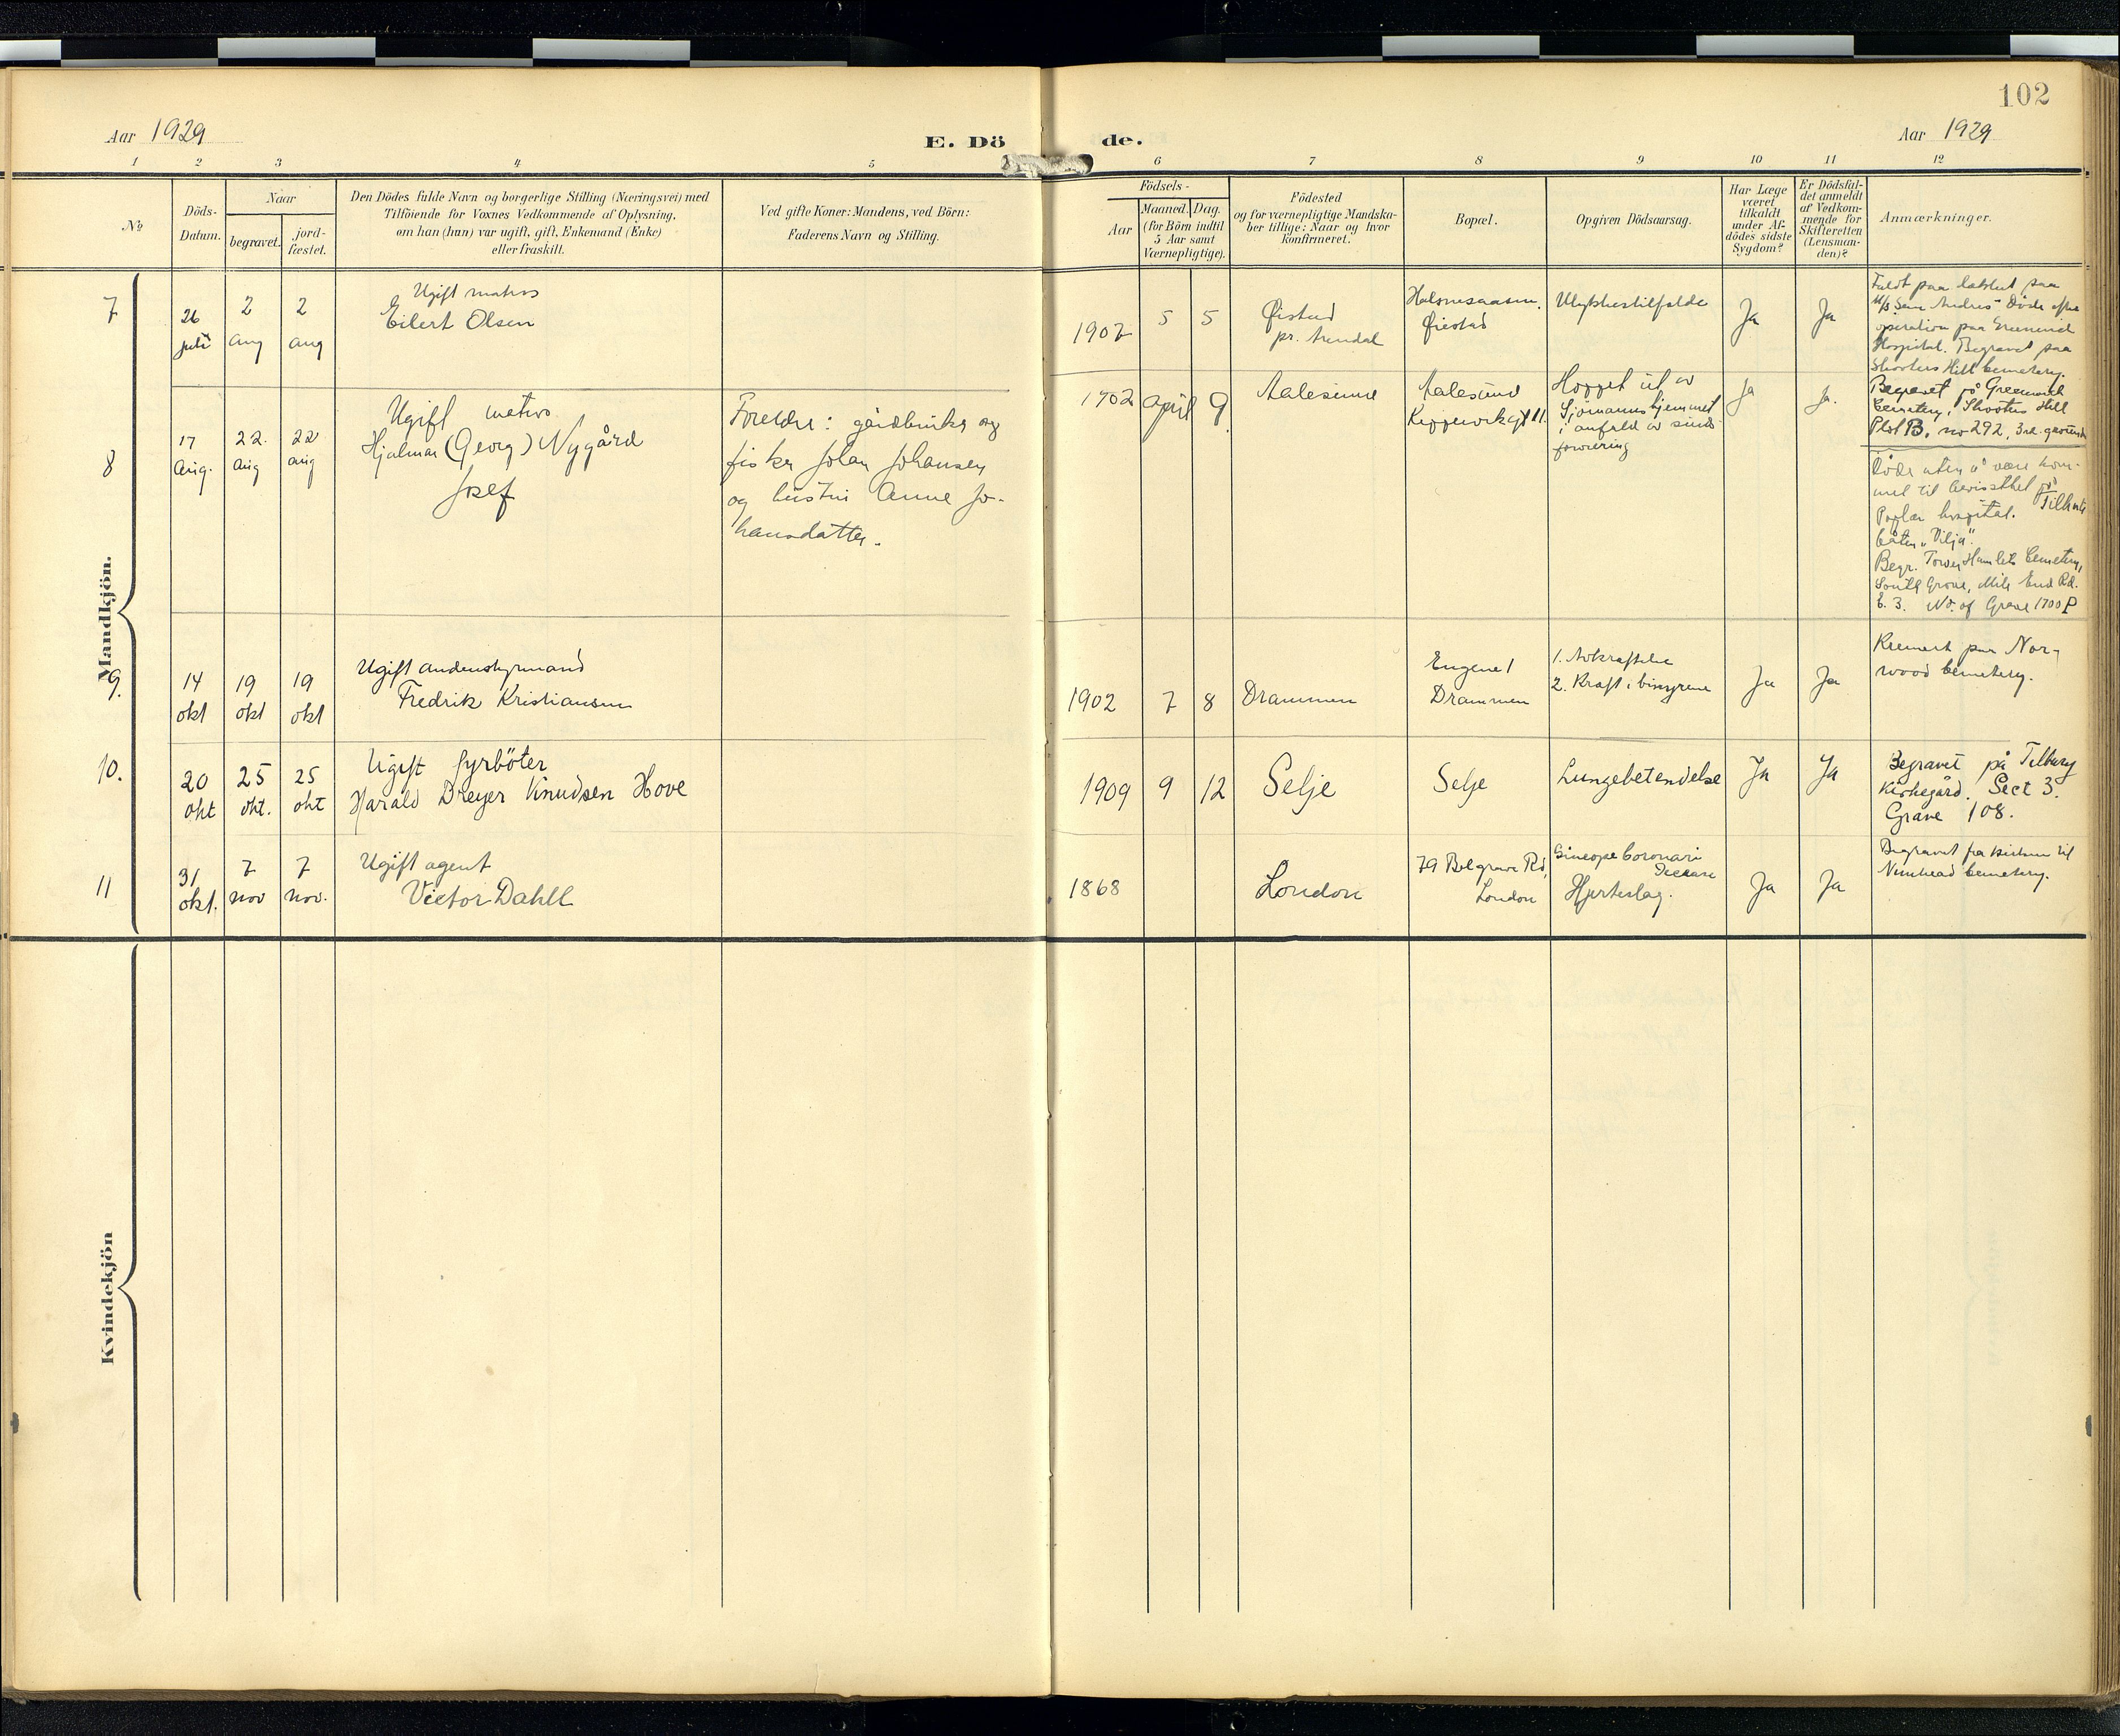 102
Aar 1929
E. Dö
de.
Aar 1929
1 2 3 4 5 6 7 8 9 10 11 12
No
Döds-
Datum.
Naar
begravet.
jord-
fæstet.
Den Dödes fulde Navn og borgerlige Stilling (Næringsvei) med
Tilföiende for Voxnes Vedkommende af Oplysning,
om han (hun) var ugift, gift, Enkemand (Enke)
eller fraskilt.
Ved gifte Koner: Mandens, ved Börn:
Faderens Navn og Stilling.
Födsels-
Aar
Maaned. Dag.
(for Börn indtil
5 Aar samt
Værnepligtige).
Födested
og for værnepligtige Mandska-
ber tillige: Naar og hvor
konfirmeret.
Bopæl.
Opgiven Dödsaarsag.
Har Læge
været
tilkaldt
under Af-
dödes sidste
Sygdom?
Er Dödsfal-
det anmeldt
af Vedkom-
mende for
Skifteretten
(Lensman-
den)?
Anmærkninger.
Mandkjön.
7
26
juli
2
aug
2
aug
Ugift matros
Eilert Olsen
1902
5
5
Øiestad
pr. Arendal
Øiestad
Ulykkestilfælde
Ja
Ja
Faldt paa paa
M/S "San Andres" Døde efter
operation paa Greenwich
Hospital. Begravet paa
Shooters Hill Cemetery.
Begravet på Greenwich
Cemetery, Shooters Hill
Plot B, no 292, 3rd. ground
8
17
Aug.
22.
Aug
22
aug
Ugift matros
Hjalmar (Georg) Nygård
Josef
Foreldre: gårdbruker og
fisker Johan Johansen
og hustru Anne Jo-
hansdatter.
1902
April
9
Aalesund
Aalesund
11.
Hoppet ut av
Sjömannshjemmet
i anfald av sinds-
forvirring
Ja
Ja.
Døde uten å være kom-
met til bevissthet på
Poplar hospital. Tilhørte
båten "Vilja".
Begr. Tower Hamlets Cemetery,
South Grove, Mile End Rd.
E. 3. No. of Grave 1700 P
9.
14
okt
19
okt
19
okt
Ugift andenstyrmand
Fredrik Kristiansen
1902
7
8
Drammen
Engene 1
Drammen
1. Avkræftelse
2. Kræft i binyrene
Ja
Ja
Kremert paa Nor-
wood Cemetery.
10.
20
okt
25
okt.
25
okt
Ugift fyrböter
Harald Dreyer Knudsen Hove
1909
9
12
Selje
Selje
Lungebetendelse
Ja
Ja
Begravet på Tilbury
Kirkegård. Sect 3.
Grave 108.
11
31
okt.
7
nov
7
nov.
Ugift agent
Victor Dahll
1868
London
79 Belgrave Rd,
London
Sincope Coronari
Hjerteslag.
Ja
Ja
Begravet fra kirken til
Nunhead Cemetery.
Kvindekjön